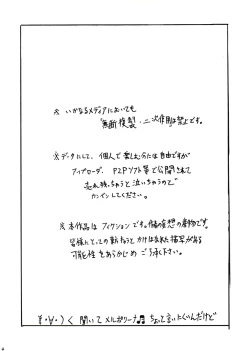 ※ いかなるメディアにおいても
無断複製、二次使用は禁止です。
※ データにして、個人で楽しむのは自由ですが
アップローダ、P2Pソト等で公開されて
売れ残っちゃうと泣いちゃうので
カンベンしてください。
※ 本作品はフィクションです。作者の妄想の産物です。
皆様にとっての
かけはなれた描写がある
可能性をあらかじめご了承下さい。
聞いてメルガリーナ♫ ちょっと言いにくいんだけど